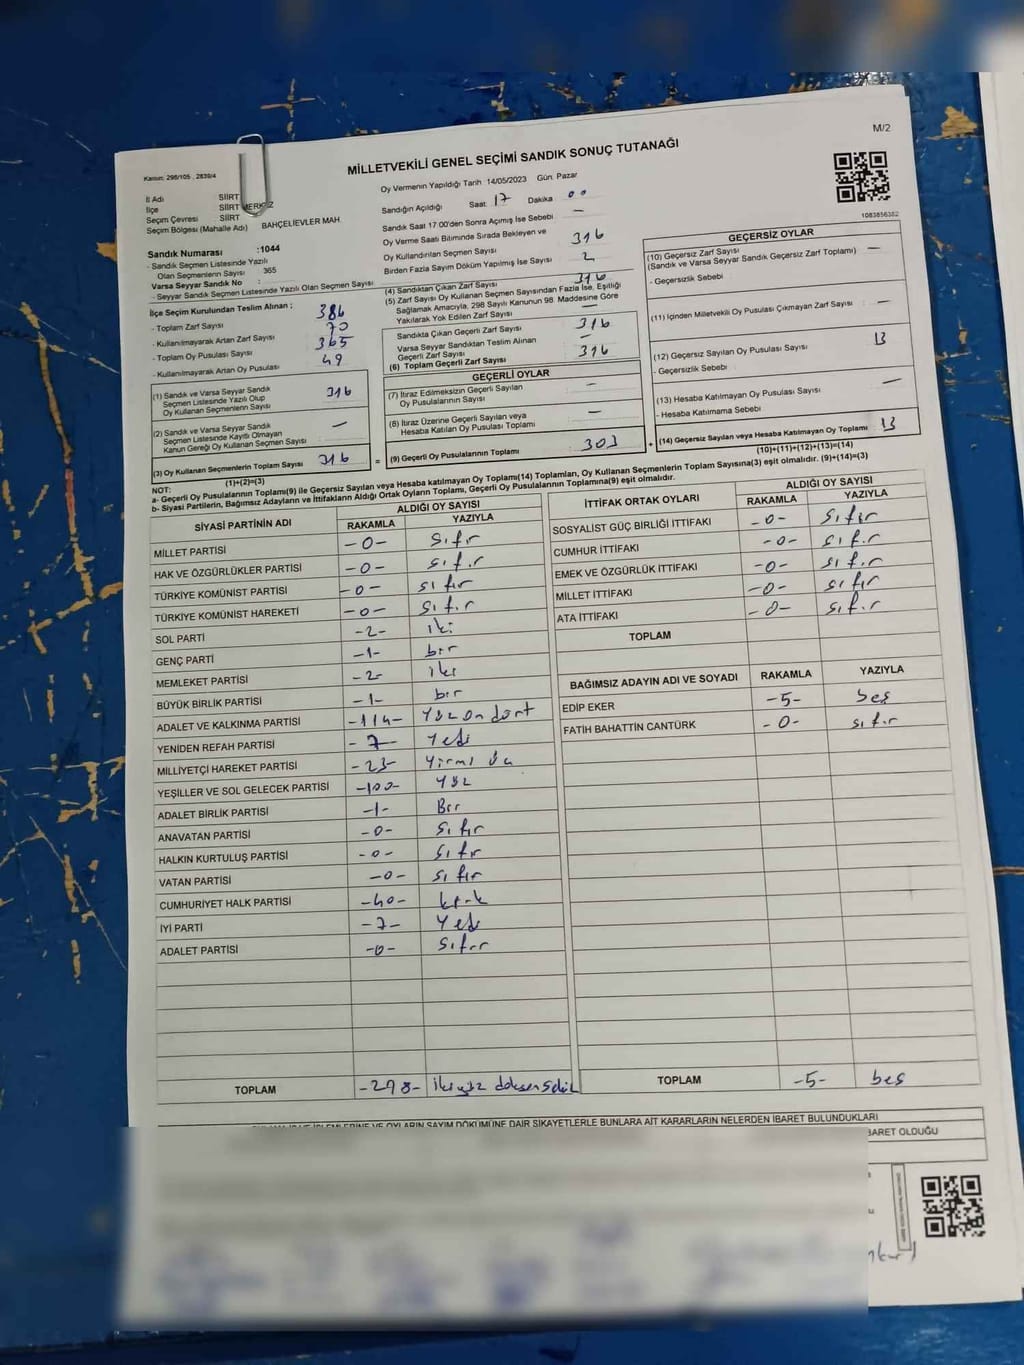 M/2
MİLLETVEKİLİ GENEL SEÇİMİ SANDIK SONUÇ TUTANAĞI
Kanun: 298/105 , 2839/4
İl Adı SİİRT
İlçe SİİRT MERKEZ
Seçim Çevresi SİİRT
Seçim Bölgesi (Mahalle Adı) BAHÇELİEVLER MAH.
Sandık Numarası :1044
- Sandık Seçmen Listesinde Yazılı
Olan Seçmenlerin Sayısı : 365
Varsa Seyyar Sandık No :
- Seyyar Sandık Seçmen Listesinde Yazılı Olan Seçmen Sayısı
İlçe Seçim Kurulundan Teslim Alınan ;
- Toplam Zarf Sayısı 386
- Kullanılmayarak Artan Zarf Sayısı 70
- Toplam Oy Pusulası Sayısı 365
- Kullanılmayarak Artan Oy Pusulası 49
(1) Sandık ve Varsa Seyyar Sandık
Seçmen Listesinde Yazılı Olup
Oy Kullanan Seçmenlerin Sayısı 316
(2) Sandık ve Varsa Seyyar Sandık
Seçmen Listesinde Kayıtlı Olmayan
Kanun Gereği Oy Kullanan Seçmen Sayısı —
(3) Oy Kullanan Seçmenlerin Toplam Sayısı 316
(1)+(2)=(3)
Oy Vermenin Yapıldığı Tarih 14/05/2023 Gün: Pazar
Sandığın Açıldığı Saat 17 Dakika 00
Sandık Saat 17:00'den Sonra Açılmış İse Sebebi —
Oy Verme Saati Bitiminde Sırada Bekleyen ve
Oy Kullandırılan Seçmen Sayısı 316
Birden Fazla Sayım Döküm Yapılmış İse Sayısı 2
(4) Sandıktan Çıkan Zarf Sayısı 316
(5) Zarf Sayısı Oy Kullanan Seçmen Sayısından Fazla İse, Eşitliği
Sağlamak Amacıyla, 298 Sayılı Kanunun 98. Maddesine Göre
Yakılarak Yok Edilen Zarf Sayısı —
Sandıkta Çıkan Geçerli Zarf Sayısı 316
Varsa Seyyar Sandıktan Teslim Alınan
Geçerli Zarf Sayısı —
(6) Toplam Geçerli Zarf Sayısı 316
GEÇERLİ OYLAR
(7) İtiraz Edilmeksizin Geçerli Sayılan
Oy Pusulalarının Sayısı —
(8) İtiraz Üzerine Geçerli Sayılan veya
Hesaba Katılan Oy Pusulası Toplamı —
= (9) Geçerli Oy Pusulalarının Toplamı 303 +
1083856382
GEÇERSİZ OYLAR
(10) Geçersiz Zarf Sayısı —
(Sandık ve Varsa Seyyar Sandık Geçersiz Zarf Toplamı)
- Geçersizlik Sebebi
(11) İçinden Milletvekili Oy Pusulası Çıkmayan Zarf Sayısı —
(12) Geçersiz Sayılan Oy Pusulası Sayısı 13
- Geçersizlik Sebebi
(13) Hesaba Katılmayan Oy Pusulası Sayısı —
- Hesaba Katılmama Sebebi
(14) Geçersiz Sayılan veya Hesaba Katılmayan Oy Toplamı 13
(10)+(11)+(12)+(13)=(14)
NOT:
a- Geçerli Oy Pusulalarının Toplamı(9) ile Geçersiz Sayılan veya Hesaba katılmayan Oy Toplamı(14) Toplamları, Oy Kullanan Seçmenlerin Toplam Sayısına(3) eşit olmalıdır. (9)+(14)=(3)
b- Siyasi Partilerin, Bağımsız Adayların ve İttifakların Aldığı Ortak Oyların Toplamı, Geçerli Oy Pusulalarının Toplamına(9) eşit olmalıdır.
SİYASİ PARTİNİN ADI ALDIĞI OY SAYISI
RAKAMLA YAZIYLA
MİLLET PARTİSİ -0- sıfır
HAK VE ÖZGÜRLÜKLER PARTİSİ -0- sıfır
TÜRKİYE KOMÜNİST PARTİSİ -0- sıfır
TÜRKİYE KOMÜNİST HAREKETİ -0- sıfır
SOL PARTİ -2- iki
GENÇ PARTİ -1- bir
MEMLEKET PARTİSİ -2- iki
BÜYÜK BİRLİK PARTİSİ -1- bir
ADALET VE KALKINMA PARTİSİ -114- Yüz on dört
YENİDEN REFAH PARTİSİ -7- Yedi
MİLLİYETÇİ HAREKET PARTİSİ -23- Yirmi üç
YEŞİLLER VE SOL GELECEK PARTİSİ -100- Yüz
ADALET BİRLİK PARTİSİ -1- Bir
ANAVATAN PARTİSİ -0- sıfır
HALKIN KURTULUŞ PARTİSİ -0- sıfır
VATAN PARTİSİ -0- sıfır
CUMHURİYET HALK PARTİSİ -40- kırk
İYİ PARTİ -7- Yedi
ADALET PARTİSİ -0- sıfır
TOPLAM -298- ikiyüz doksan sekiz
İTTİFAK ORTAK OYLARI ALDIĞI OY SAYISI
RAKAMLA YAZIYLA
SOSYALİST GÜÇ BİRLİĞİ İTTİFAKI -0- sıfır
CUMHUR İTTİFAKI -0- sıfır
EMEK VE ÖZGÜRLÜK İTTİFAKI -0- sıfır
MİLLET İTTİFAKI -0- sıfır
ATA İTTİFAKI -0- sıfır
TOPLAM
BAĞIMSIZ ADAYIN ADI VE SOYADI RAKAMLA YAZIYLA
EDİP EKER -5- beş
FATİH BAHATTİN CANTÜRK -0- sıfır
TOPLAM -5- beş
OYLARIN SAYIM DÖKÜMÜNE DAİR ŞİKAYETLERLE BUNLARA AİT KARARLARIN NELERDEN İBARET BULUNDUKLARI
OLDUĞU